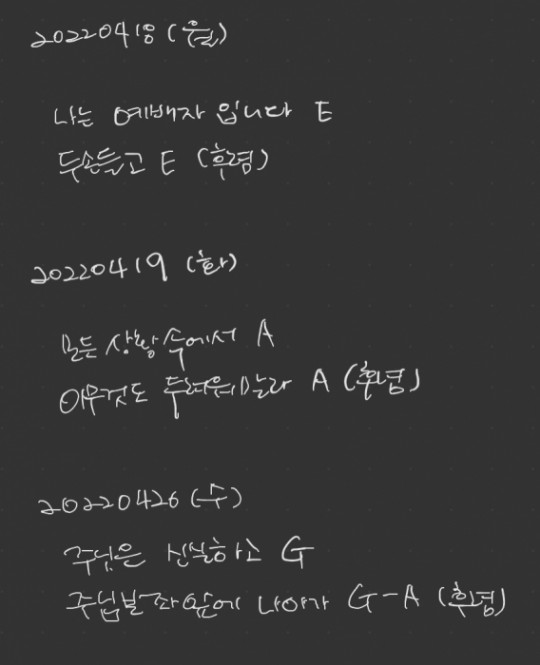 20220418 (월)
나는 예배자 입니다 E
두손들고 E (후렴)
20220419 (화)
모든 상황 속에서 A
아무것도 두려워말라 A (후렴)
20220426 (수)
주님은 신실하고 G
주님보좌앞에 나아가 G-A (후렴)